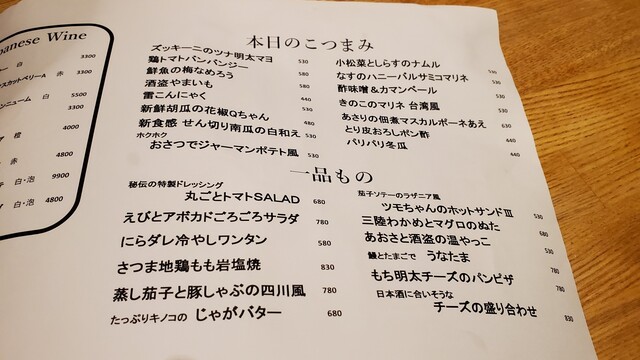 panese Wine
白 3300
スカットベリーA 赤 3300
ンニューム 白 5500
3300
ア 橙 4000
赤 4800
テ 白・泡 9900
白・泡 4800
本日のこつまみ
ズッキーニのツナ明太マヨ 530
鶏トマトバンバンジー 580
鮮魚の梅なめろう 580
酒盗やまいも 580
雷こんにゃく 440
新鮮胡瓜の花椒Qちゃん 530
新食感 せん切り南瓜の白和え 480
ホクホク
おさつでジャーマンポテト風 530
小松菜としらすのナムル
なすのハニーバルサミコマリネ 530
酢味噌&カマンベール 530
きのこのマリネ 台湾風 530
あさりの佃煮マスカルポーネあえ 630
とり皮おろしポン酢 440
パリパリ冬瓜 440
一品もの
秘伝の特製ドレッシング
丸ごとトマトSALAD 680
えびとアボカドごろごろサラダ 780
にらダレ冷やしワンタン 580
さつま地鶏もも岩塩焼 830
蒸し茄子と豚しゃぶの四川風 780
たっぷりキノコの じゃがバター 680
茄子ソテーのラザニア風
ツモちゃんのホットサンドⅢ 530
三陸わかめとマグロのぬた 680
あおさと酒盗の温やっこ 530
鰻とたまごで うなたま 780
もち明太チーズのパンピザ 780
日本酒に合いそうな
チーズの盛り合わせ 830